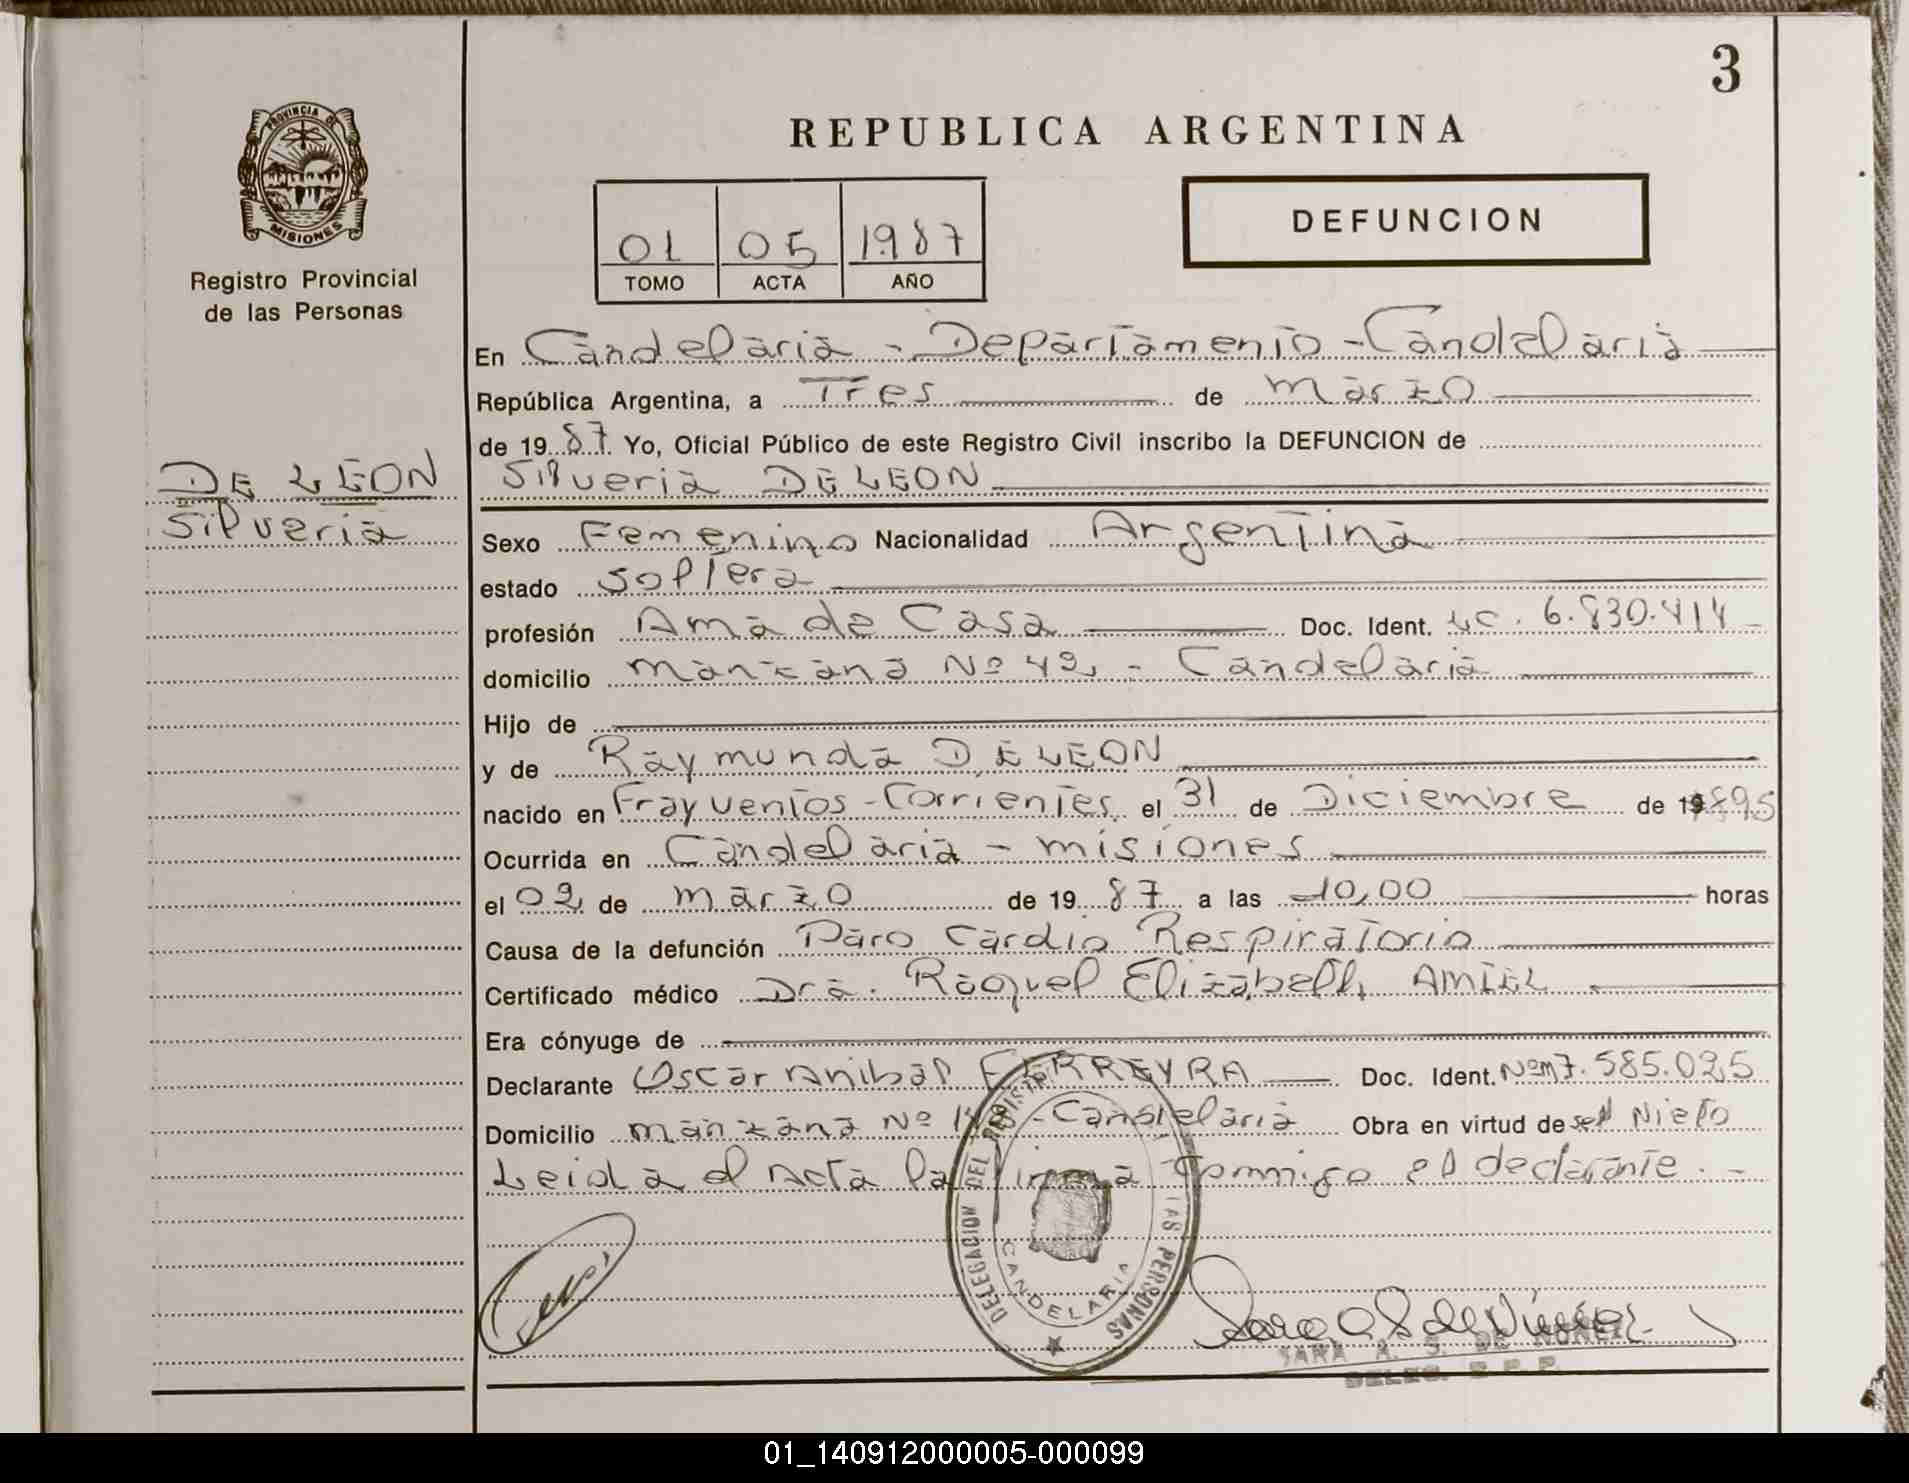 3
PROVINCIA DE
MISIONES
Registro Provincial
de las Personas
REPUBLICA ARGENTINA
01 05 1987
TOMO ACTA AÑO
DEFUNCION
En Candelaria - Departamento - Candelaria
República Argentina, a Tres de Marzo
de 19 87. Yo, Oficial Público de este Registro Civil inscribo la DEFUNCION de
DE LEON
Silveria
Silveria DE LEON
Sexo Femenino Nacionalidad Argentina
estado Soltera
profesión Ama de Casa Doc. Ident. LC. 6.830.414
domicilio Manzana Nº 42 - Candelaria
Hijo de
y de Raymunda DE LEON
nacido en Frayventos - Corrientes el 31 de Diciembre de 1895
Ocurrida en Candelaria - Misiones
el 02 de Marzo de 19 87 a las 10,00 horas
Causa de la defunción Paro Cardio Respiratorio
Certificado médico Dra. Raquel Elizabeth AMIEL
Era cónyuge de
Declarante Oscar Anibal FERREYRA Doc. Ident. Nº M7.585.025
Domicilio Manzana Nº - Candelaria Obra en virtud de ser Nieto
Leida el Acta la firma Conmigo el declarante. -
DELEGACION DEL REGISTRO LAS PERSONAS
CANDELARIA
SARA A. S. DE NUÑEZ
DELEG. R.P.P.
01_140912000005-000099